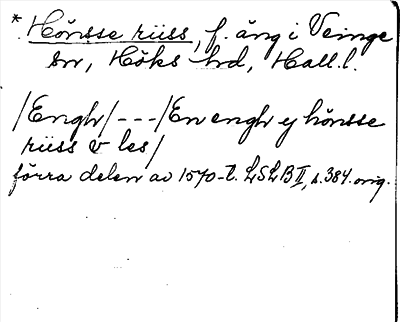 *. Hönsse rüss, f. äng i Veinge
sn, Höks hd, Hall. l.
/Engh/---/En engh ej hönsse
rüss v les/
förra delen av 1570-t. LSLB II, s. 384. orig.